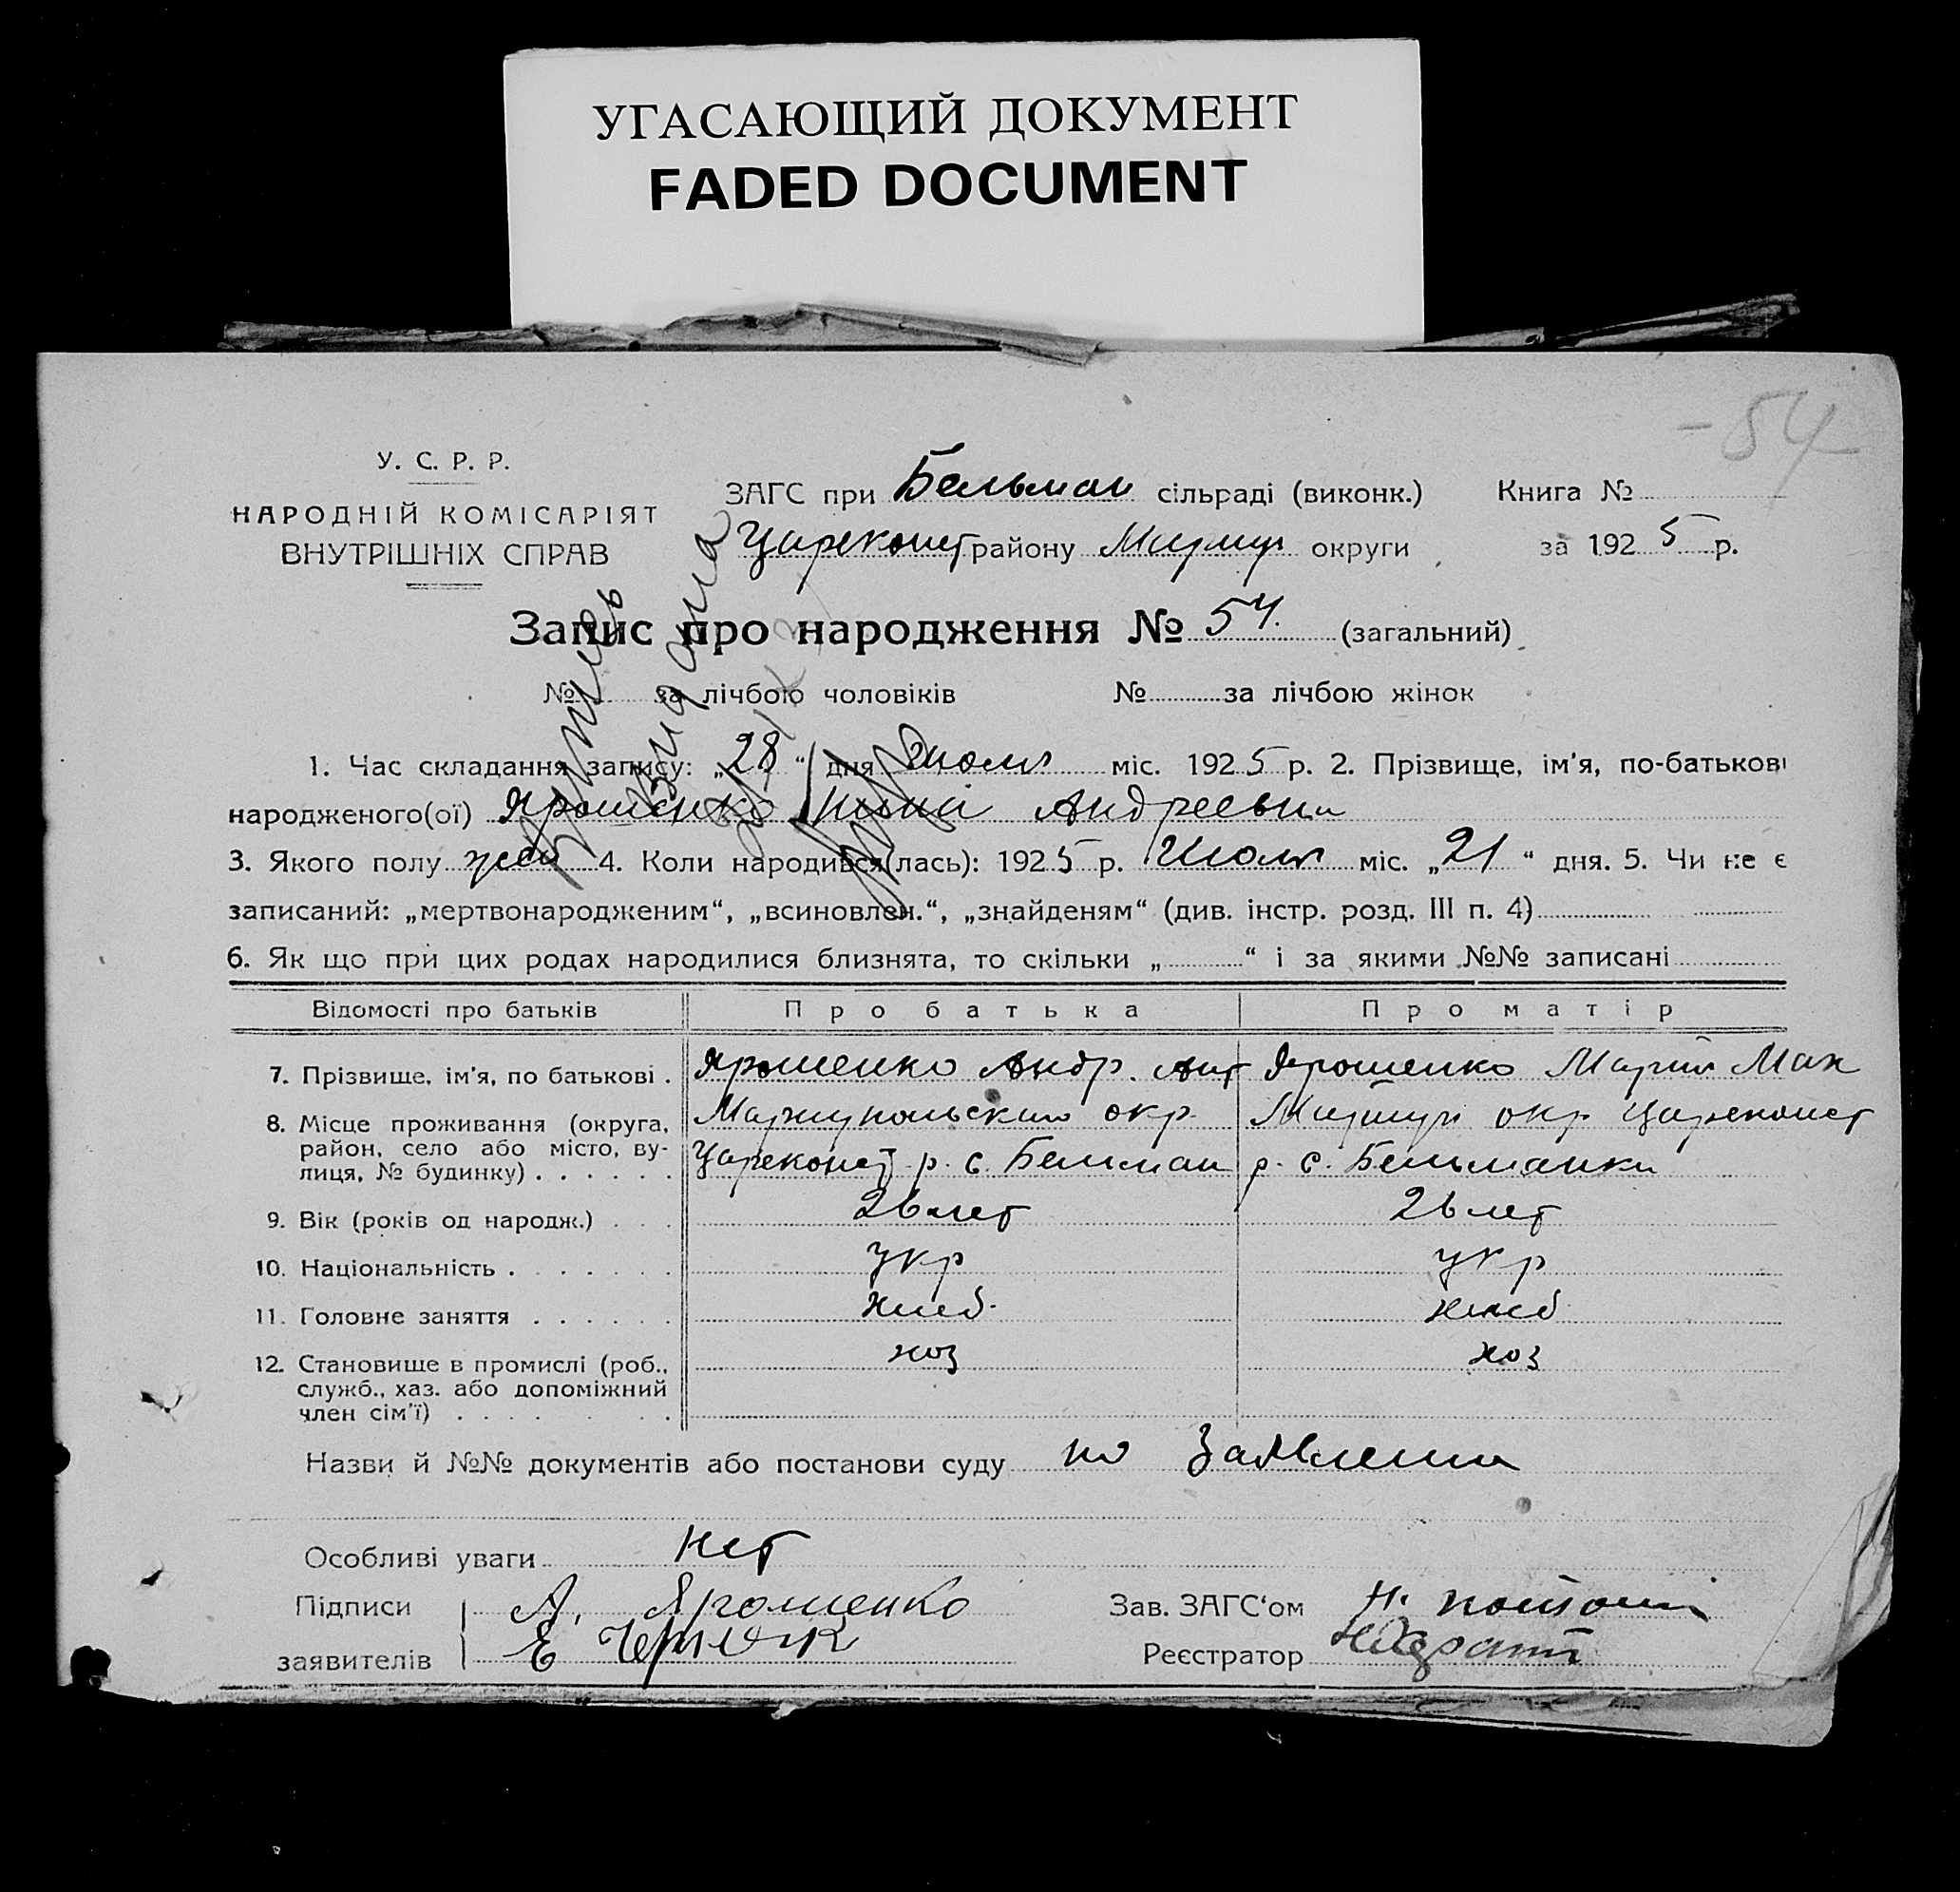 УГАСАЮЩИЙ ДОКУМЕНТ
FADED DOCUMENT
-54
У. С. Р. Р.
НАРОДНІЙ КОМІСАРІЯТ
ВНУТРІШНІХ СПРАВ
ЗАГС при Бельман сільраді (виконк.) Книга №
Цареконст району Мариуп округи за 1925 р.
Запис про народження № 54. (загальний)
№ за лічбою чоловіків № за лічбою жінок
запись
1. Час складання запису: „28“ дня Июля міс. 1925 р. 2. Прізвище, ім'я, по-батькові
народженого(ої) Ярошенко Андреевна
3. Якого полу жен 4. Коли народився(лась): 1925 р. Июля міс. „21“ дня. 5. Чи не є
записаний: „мертвонародженим“, „всиновлен.“, „знайденям“ (див. інстр. розд. III п. 4)
6. Як що при цих родах народилися близнята, то скільки „ “ і за якими №№ записані
Відомості про батьків Про батька Про матір
7. Прізвище, ім'я, по батькові . Ярошенко Андр. Ант Ярошенко Мария Мак
8. Місце проживання (округа, район, село або місто, вулиця, № будинку) . . . . . .
Мариупольский окр. Мариуп окр Цареконст
Цареконст р. с. Бельман р. с. Бельманка
9. Вік (років од народж.) . . . 26 лет 26 лет
10. Національність . . . . . . . укр укр
11. Головне заняття . . . . . . хлеб. хлеб
12. Становище в промислі (роб., хоз хоз
служб., хаз. або допоміжний
член сім'ї) . . . . . .
Назви й №№ документів або постанови суду по Заявлению
Особливі уваги нет
Підписи А. Ярошенко Зав. ЗАГС'ом
заявителів Е Реєстратор